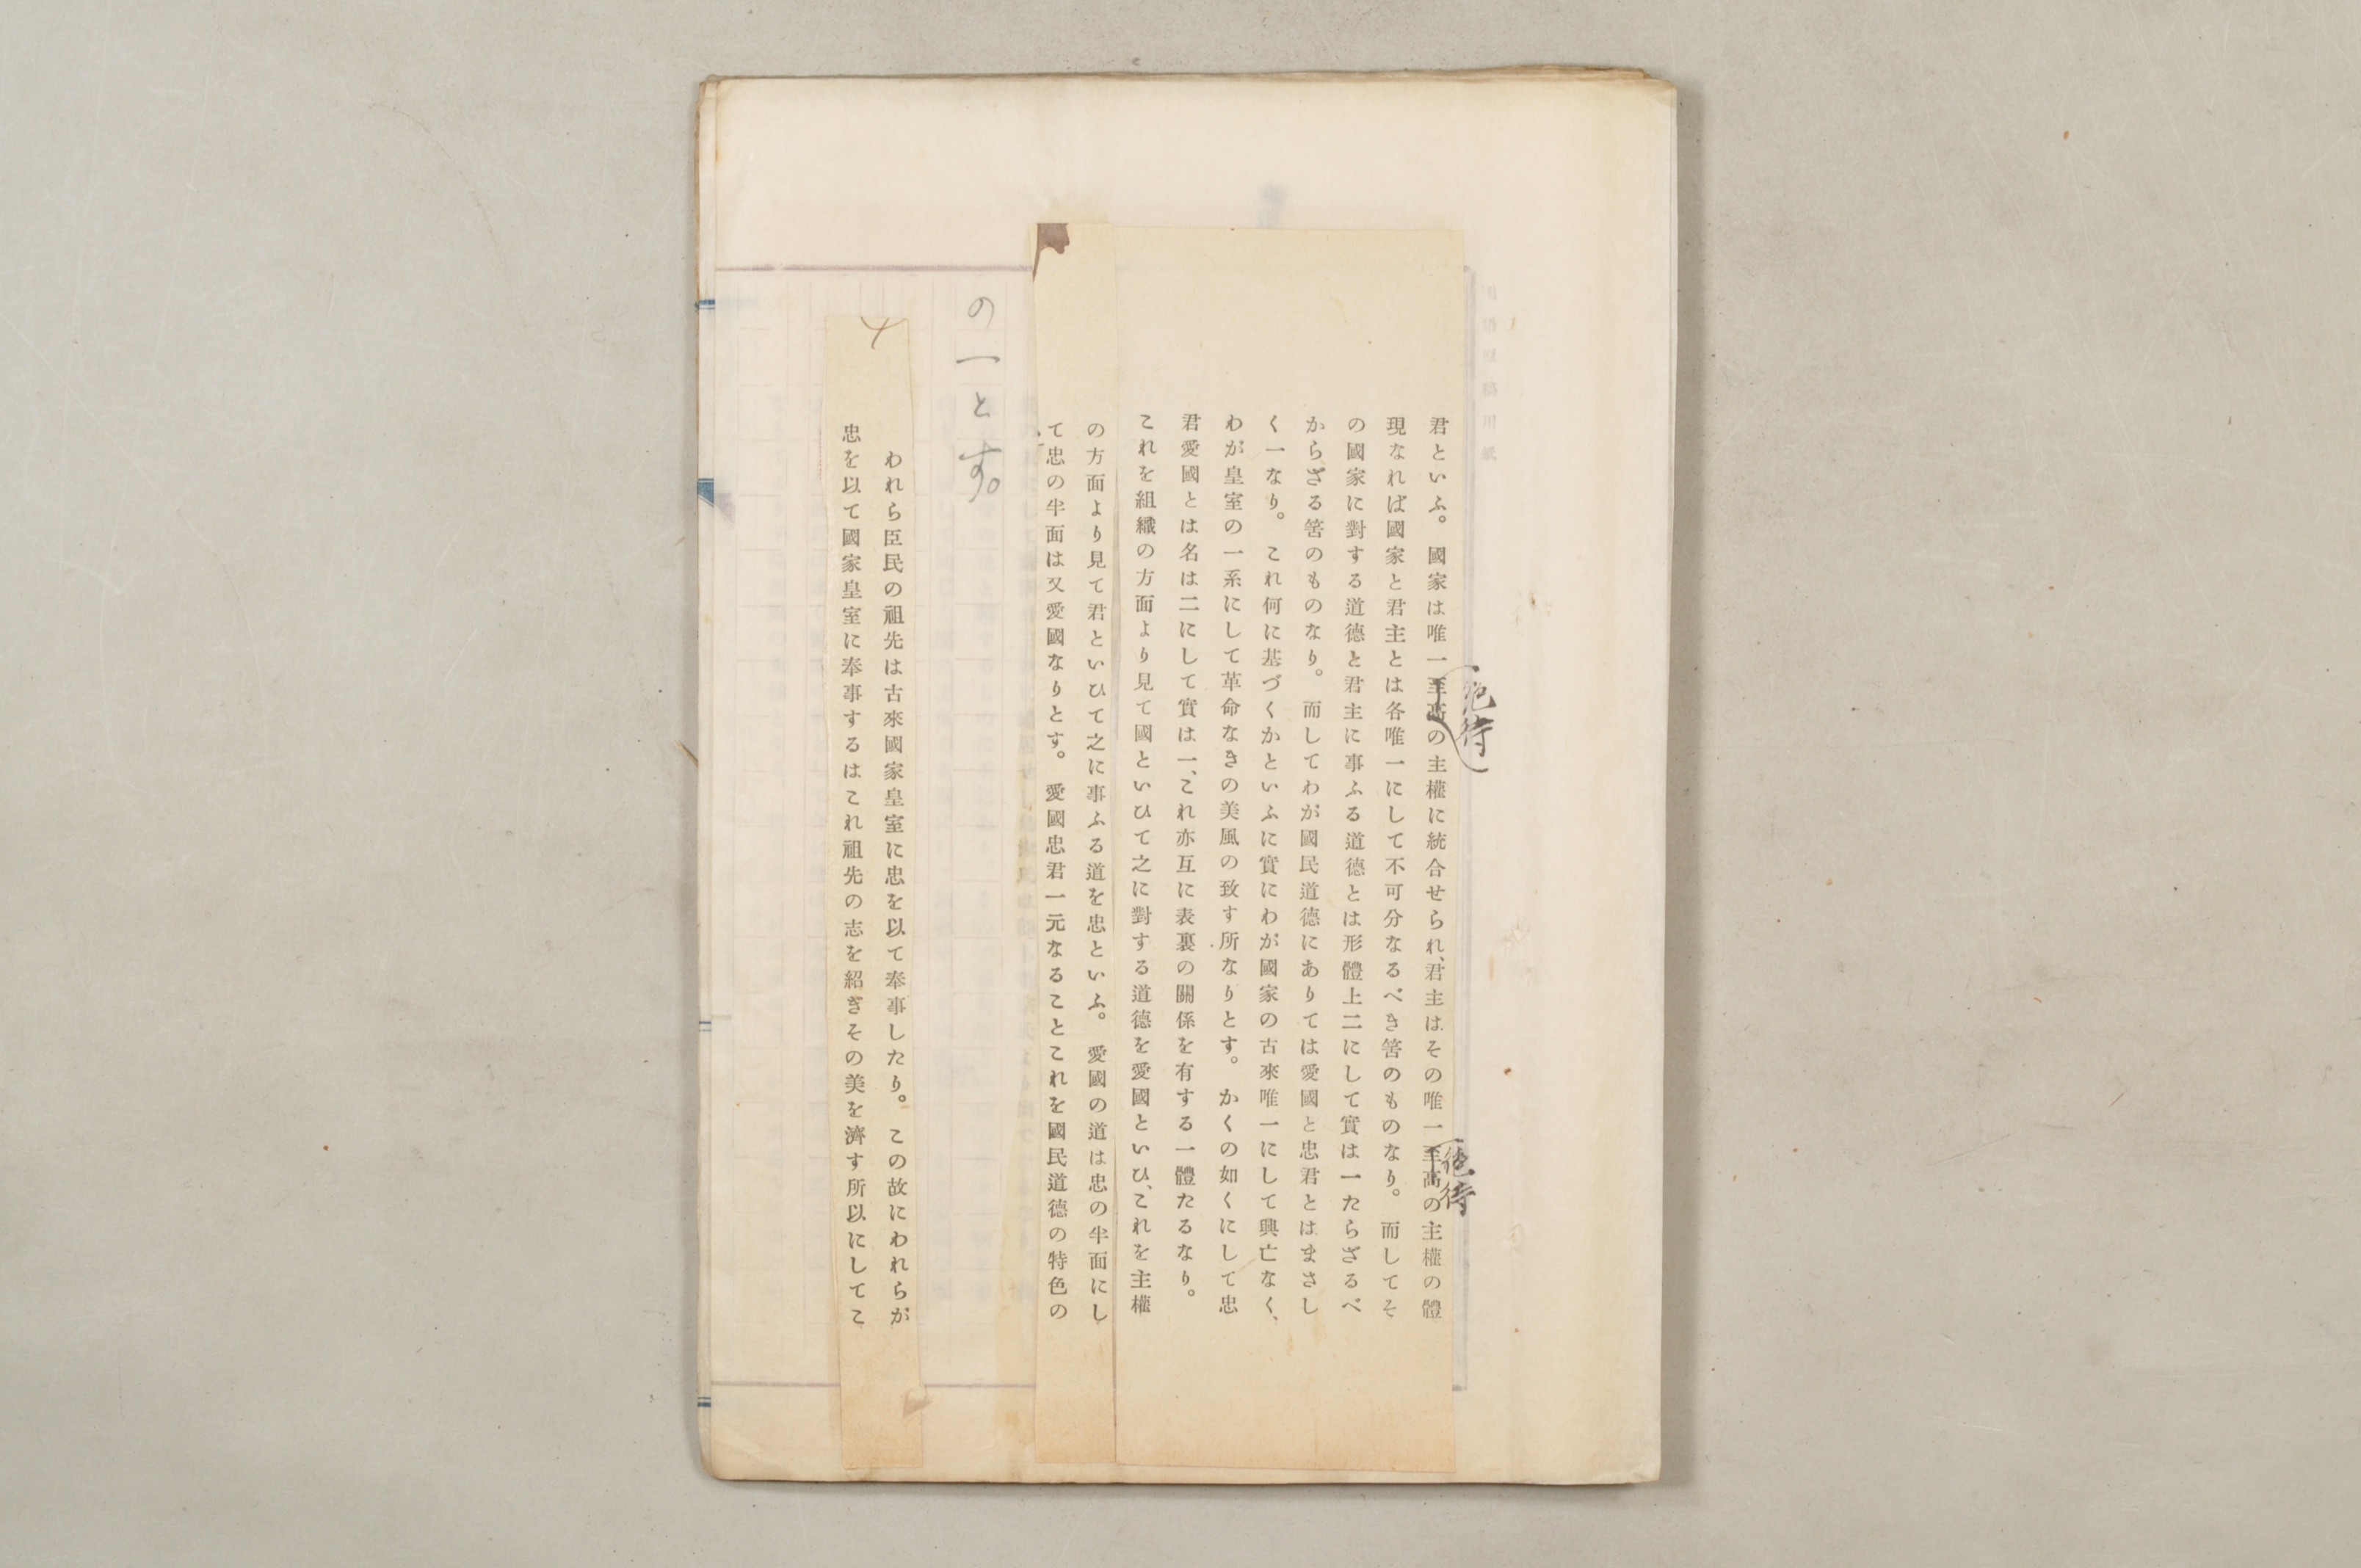 君といふ。國家は唯一至高の主權に統合せられ、君主はその唯一至高の主權の體
絶待
絶待
現なれば國家と君主とは各唯一にして不可分なるべき筈のものなり。而してそ
の國家に對する道德と君主に事ふる道德とは形體上二にして實は一たらざるべ
からざる筈のものなり。而してわが國民道德にありては愛國と忠君とはまさし
く一なり。これ何に基づくかといふに實にわが國家の古來唯一にして興亡なく、
わが皇室の一系にして革命なきの美風の致す所なりとす。かくの如くにして忠
君愛國とは名は二にして實は一、これ亦互に表裏の關係を有する一體たるなり。
これを組織の方面より見て國といひて之に對する道德を愛國といひ、これを主權
の方面より見て君といひて之に事ふる道を忠といふ。愛國の道は忠の半面にし
て忠の半面は又愛國なりとす。愛國忠君一元なることこれを國民道德の特色の
の一とす。
われら臣民の祖先は古來國家皇室に忠を以て奉事したり。この故にわれらが
忠を以て國家皇室に奉事するはこれ祖先の志を紹ぎその美を濟す所以にしてこ